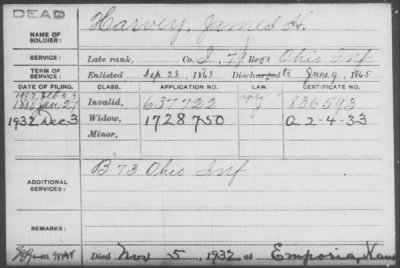 DEAD
NAME OF SOLDIER: Harvey, James H.
SERVICE: Late rank, Co. I, 79 Reg't Ohio Inf
TERM OF SERVICE: Enlisted Sep. 28, 1863 Discharged June 9, 1865
DATE OF FILING. CLASS. APPLICATION NO. LAW. CERTIFICATE NO.
1888 Jan 27 Invalid, 637722 836593
1932 Dec 3 Widow, 1728750 a 2-4-33
Minor,
ADDITIONAL SERVICES: B 73 Ohio Inf
REMARKS:
Died Nov 5, 1932 at Emporia, Kans